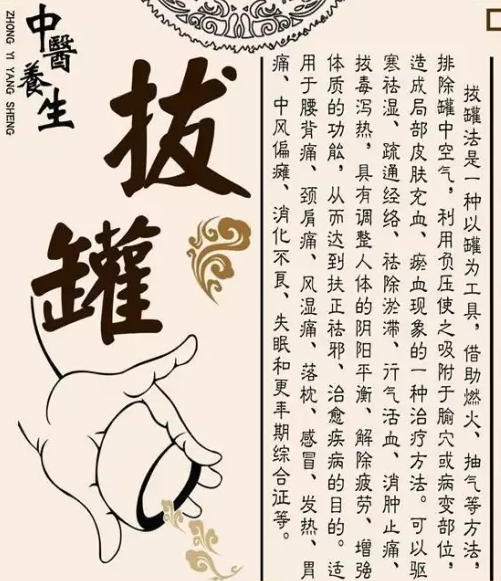 中醫養生
ZHONG YI YANG SHENG
拔罐
拔罐法是一种以罐为工具，借助燃火、抽气等方法，
排除罐中空气，利用负压使之吸附于腧穴或病变部位，
造成局部皮肤充血、瘀血现象的一种治疗方法。可以驱
寒祛湿、疏通经络、祛除淤滞、行气活血、消肿止痛、
拔毒泻热，具有调整人体的阴阳平衡、解除疲劳、增强
体质的功能，从而达到扶正祛邪、治愈疾病的目的。适
用于腰背痛、颈肩痛、风湿痛、落枕、感冒、发热、胃
痛、中风偏瘫、消化不良、失眠和更年期综合证等。